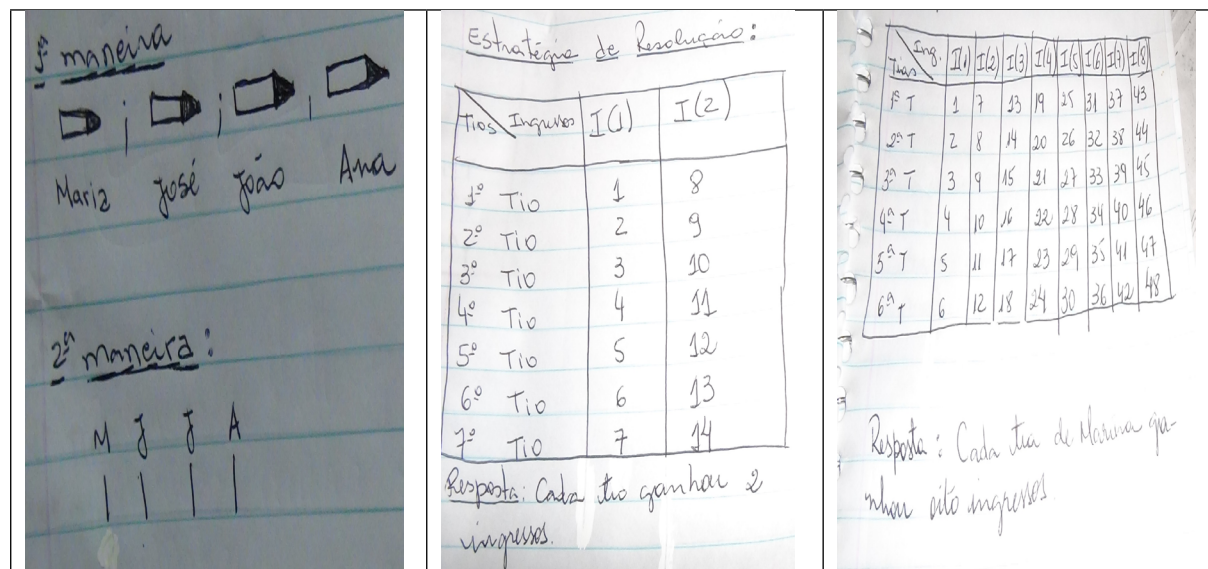 1ª maneira
; ; ,
Maria José João Ana
2ª maneira:
M J J A
Estratégia de Resolução:
Tios Ingressos I(1) I(2)
1º Tio 1 8
2º Tio 2 9
3º Tio 3 10
4º Tio 4 11
5º Tio 5 12
6º Tio 6 13
7º Tio 7 14
Resposta: Cada tio ganhou 2
ingressos.
Tias Ing. I(1) I(2) I(3) I(4) I(5) I(6) I(7) I(8)
1ª T 1 7 13 19 25 31 37 43
2ª T 2 8 14 20 26 32 38 44
3ª T 3 9 15 21 27 33 39 45
4ª T 4 10 16 22 28 34 40 46
5ª T 5 11 17 23 29 35 41 47
6ª T 6 12 18 24 30 36 42 48
Resposta: Cada tia de Marina ga-
nhou oito ingressos.